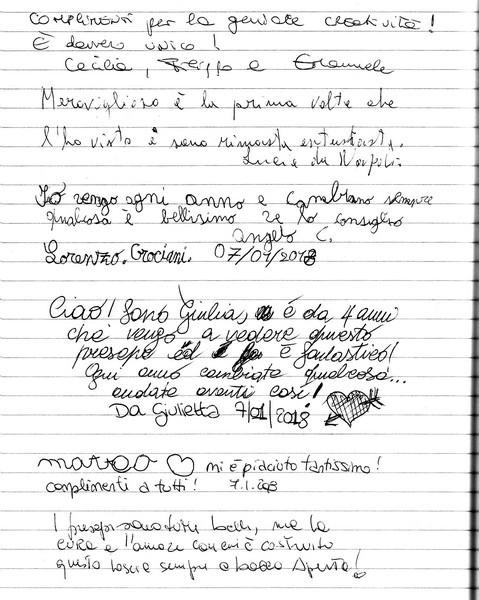 Complimenti per la geniale creatività!
È davvero unico!
Cecilia, Filippo e Emanuele
Meraviglioso è la prima volta che
l'ho visto è sono rimasta entusiasta.
Lucia da Napoli
Io vengo ogni anno e Cambiano sempre
qualcosa è bellisimo ve lo consiglio
angelo C.
Lorenzo. Crociani. 07/01/2018
Ciao! Sono Giulia, è da 4 anni
che vengo a vedere questo
presepe ed è fantastico!
Ogni anno cambiate qualcosa...
andate avanti così!
Da Giulietta 7/01/2018
marco mi è piaciuto tantissimo!
complimenti a tutti! 7.1.2018
I presepi sono tutti belli, ma la
cura e l'amore con cui è costruito
questo lascia sempre a bocca Aperta!